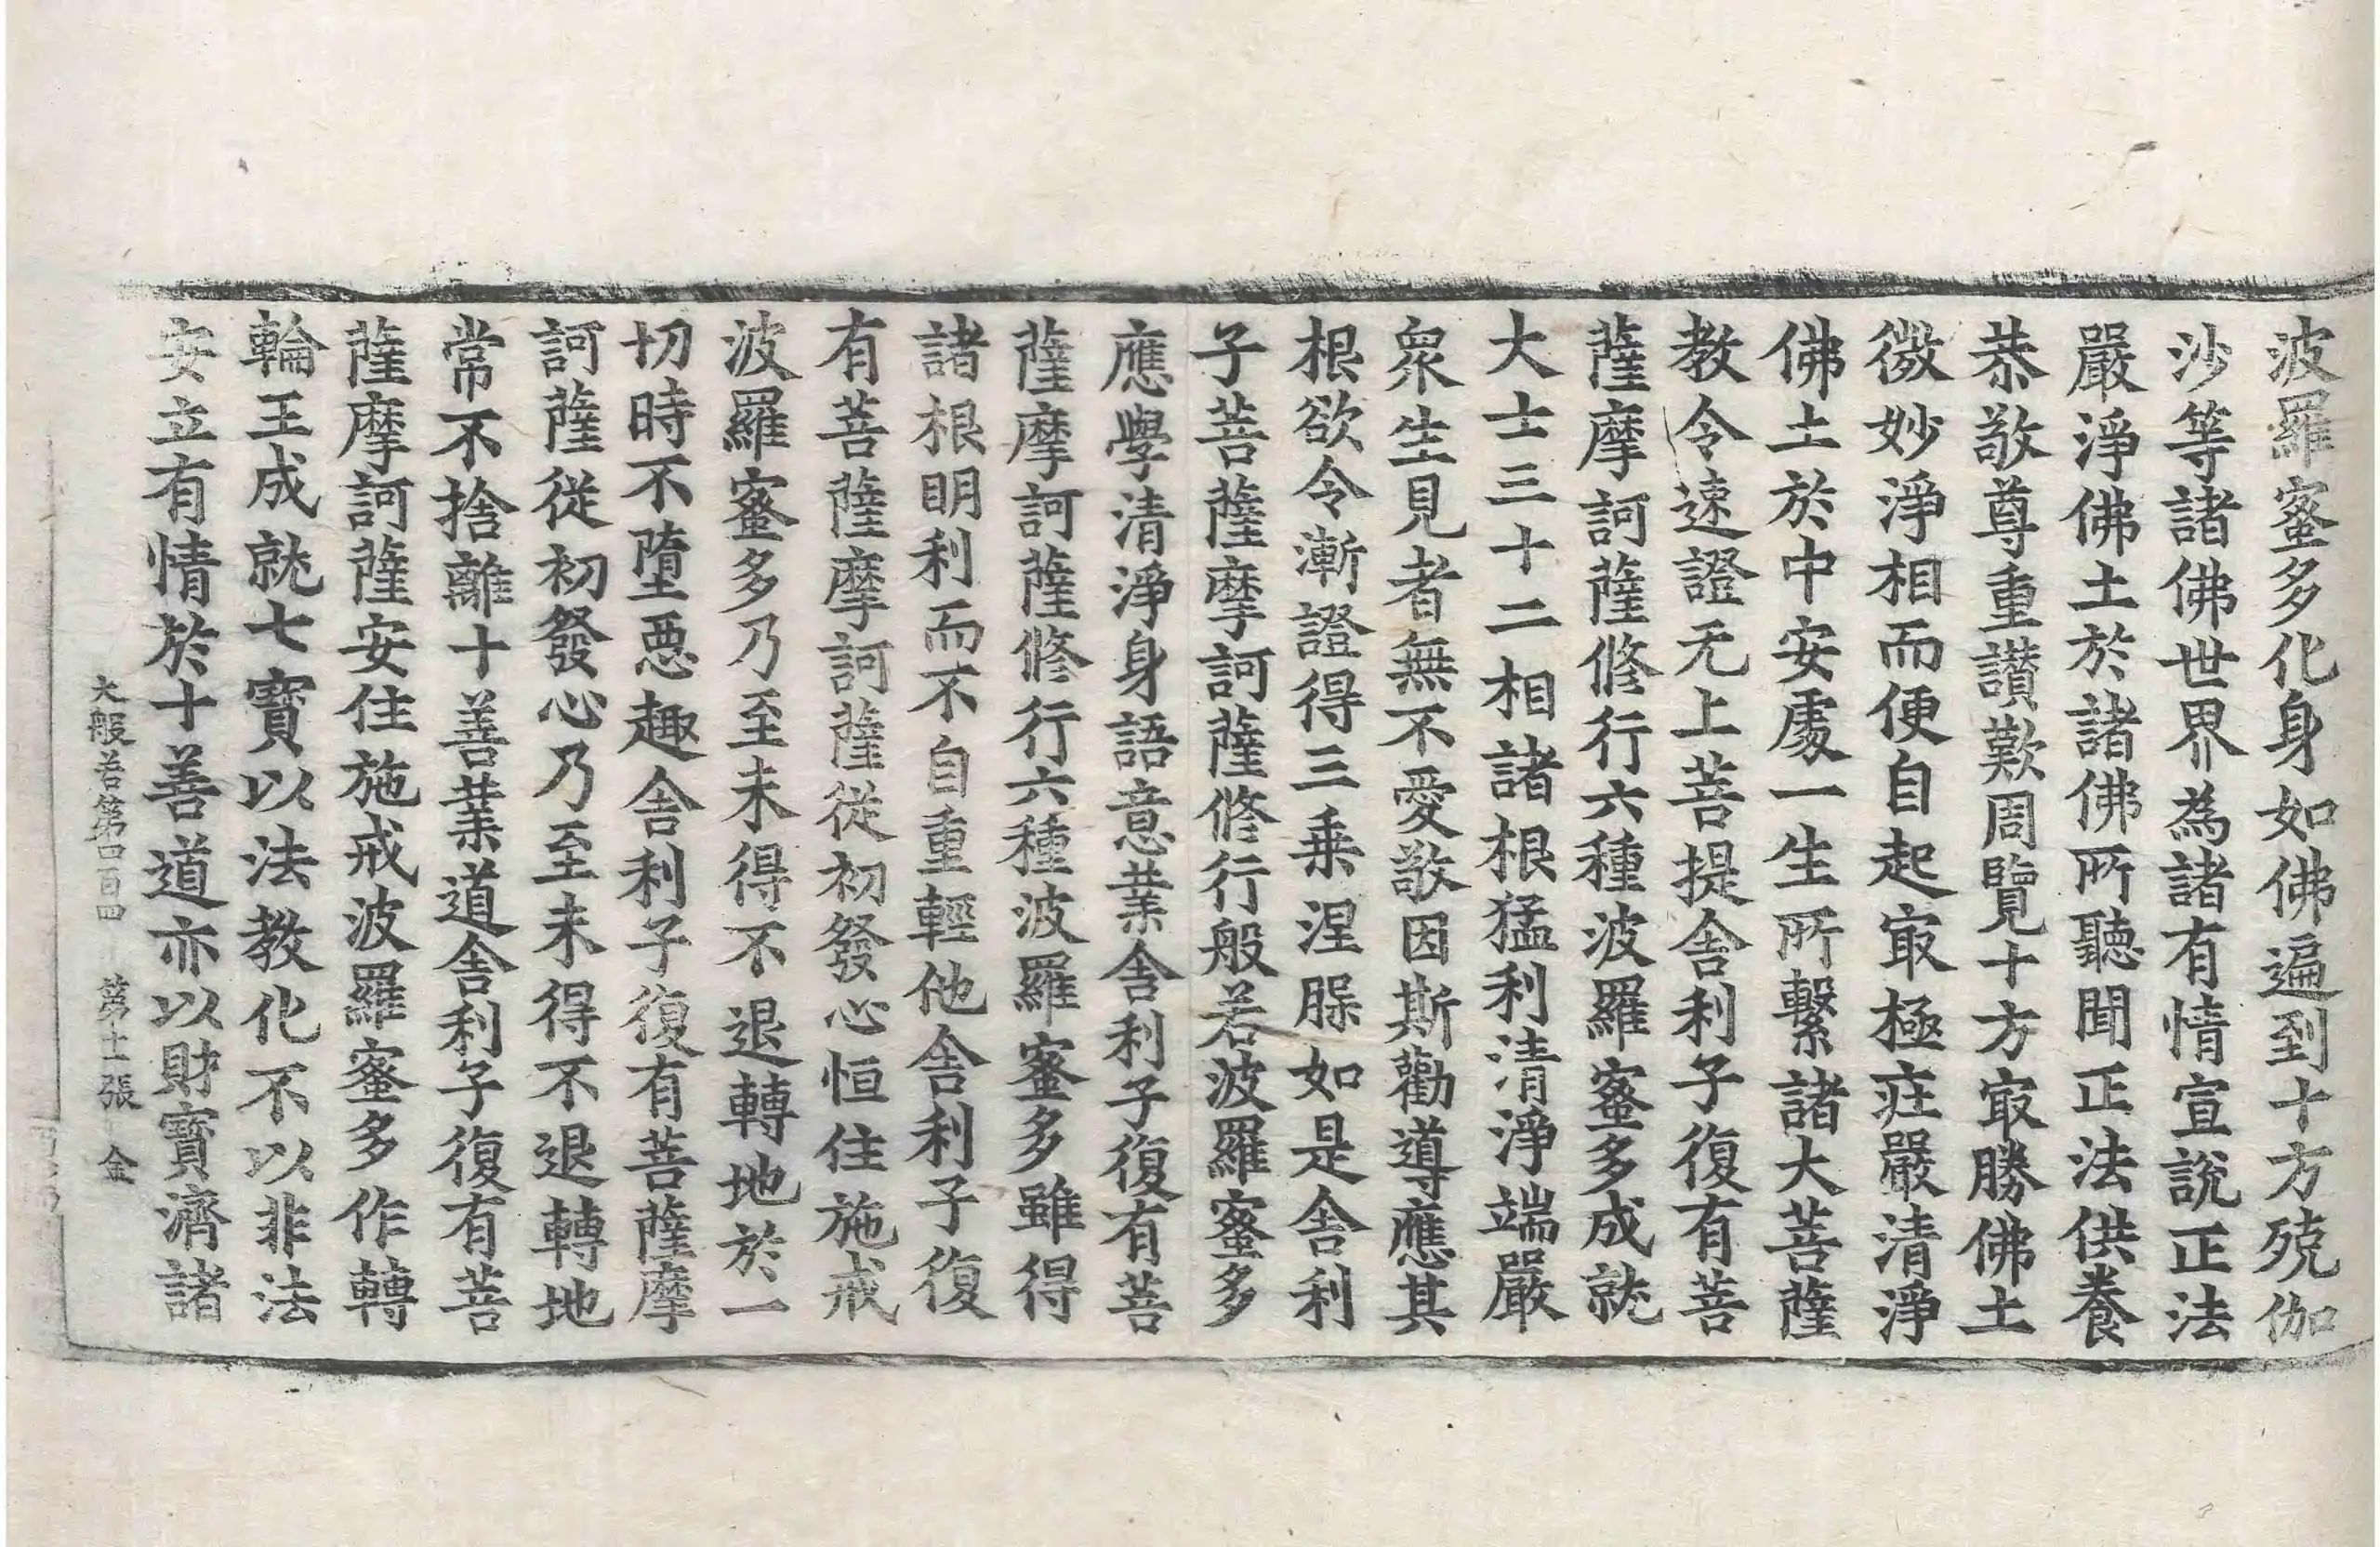 波羅蜜多化身如佛遍到十方殑伽
沙等諸佛世界為諸有情宣說正法
嚴淨佛土於諸佛所聽聞正法供養
恭敬尊重讃歎周覽十方㝡勝佛土
微妙淨相而便自起㝡極疰嚴清淨
佛土於中安處一生所繫諸大菩薩
教令速證无上菩提舍利子復有菩
薩摩訶薩修行六種波羅蜜多成就
大士三十二相諸根猛利清淨端嚴
衆生見者無不愛敬因斯勸導應其
根欲令漸證得三乗涅槃如是舍利
子菩薩摩訶薩修行般若波羅蜜多
應學清淨身語意業舍利子復有菩
薩摩訶薩修行六種波羅蜜多雖得
諸根明利而不自重輕他舍利子復
有菩薩摩訶薩從初發心恒住施戒
波羅蜜多乃至未得不退轉地於一
切時不墮惡趣舍利子復有菩薩摩
訶薩從初發心乃至未得不退轉地
常不捨離十善業道舍利子復有菩
薩摩訶薩安住施戒波羅蜜多作轉
輪王成就七寶以法教化不以非法
安立有情於十善道亦以財寶濟諸
大般若第四百四 第十二張 金